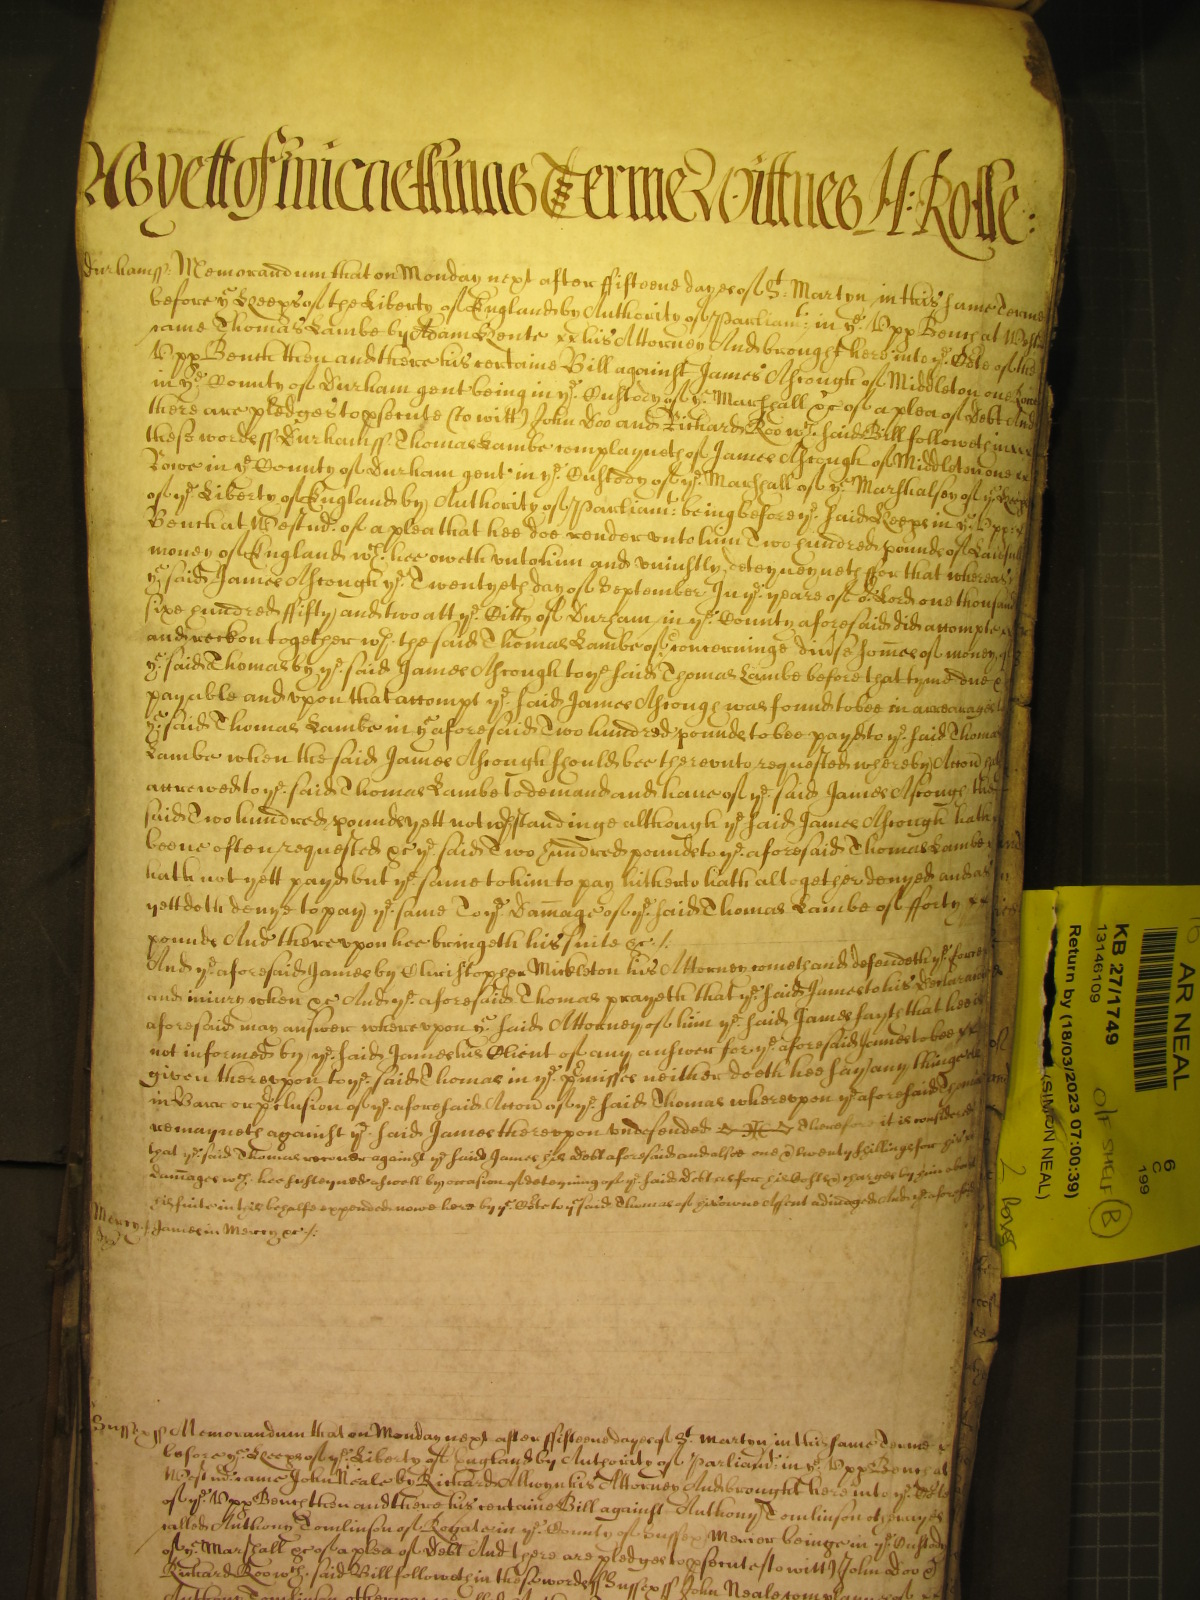 As yett of Michaellmas Terme Wittnes H: Rolle:
Durham ss. Memorandum that on Monday next after ffifteene dayes of St. Martyn in this same Terme
before ye Keeps of the Liberty of England by Authority of Parliamt: in ye. Upp Bench at Westmr
came Thomas Lambe by Adam xx his Attorney And brought here into ye. Cote of the
Upp Bench then and there his certaine Bill against James Ascough of Middleton one Rowe
in ye. County of Durham gent being in ye. Custody of ye. Marshall &c of a plea of Debt And
there are pledges to psecute (to witt) John Doo and Richard Roo wch. said Bill followeth in xx
these words ss Durham ss. Thomas Lambe complayneth of James Ascough of Middleton one xx
Rowe in ye. County of Durham gent. in ye. Custody of ye. Marshall of ye. Marshalsey of ye. Keeps
of ye. Liberty of England by Authority of Parliamt: being before ye. said Keeps in ye. Upper
Bench at Westmr: of a plea that hee doe render unto him Two hundred pounds of Lawfull
money of England wch. hee oweth unto him and uniustly deteyneth ffor that whereas
ye. said James Ascough ye. Twentyeth day of September In ye. yeare of or. Lord one thousand
sixe hundred ffifty and two att ye. Citty of Durham in ye. County aforesaid did accompte
and reckon together wth. the said Thomas Lambe of concerninge divse somes of money
ye. said Thomas by ye. said James Ascough to ye. said Thomas Lambe before that tyme due x
payable and upon that accompt ye. said James Ascough was found to bee in arrearages
ye. said Thomas Lambe in ye aforesaid Two hundred pounds to bee payd to ye. said Thomas
Lambe when the said James Ascough should bee thereunto requested whereby Accon
accrewed to ye. said Thomas Lambe to demand and have of ye. said James Ascough the
said Two hundred pounds yett notwthstandinge although ye. said James Ascough hath
beene often requested &c ye. said Two hundred pounds to ye. aforesaid Thomas Lambe
hath not yett payd but ye. same to him to pay hitherto hath altogether denyed and as
yett doth denye to pay ye. same To ye. Damage of ye. said Thomas Lambe of fforty xx
pounds And thereupon hee bringeth his suite &c ./.
And ye. aforesaid James by Christopher Mickleton his Attorney cometh and defendeth ye. force
and iniury when &c And ye. aforesaid Thomas prayeth that ye. said James to his Declaracon
aforesaid may answer whereupon ye. said Attorney of him ye. said James sayth that hee is
not informed by ye. said James his Client of any answer for ye. aforesaid James to bee xx
given thereupon to ye. said Thomas in ye. pmisses neither doeth hee say any thinge
in Barr or pclusion of ye. aforesaid Accon of ye. said Thomas whereupon ye. aforesaid Thomas
remayneth against ye. said James thereupon undefended Therefore it is considered
that ye. said Thomas recover against ye. said James his Debt aforesaid and alsoe one & twenty shillings for his
dammages wch. hee susteyned aswell by occasion of deteyning of ye. said Debt as for his costs & charges by him about
his suite in this behalfe expended nowe here by ye. Cote to ye. said Thomas of his owne assent adiudged And ye. aforesd
Mercy ./. James in Mercy &c ./.
Sussex ss Memorandum that on Monday next after ffifteene dayes of St. Martyn in this same Terme
before ye. Keeps of ye. Liberty of England by Authority of Parliamt: in ye. Upp Bench at
Westmr: came John Neale by Richard Allwyn his Attorney And brought here into ye. Cote
of ye. Upp Bench then and there his certaine Bill against Anthony Tomlinson otherwyse
called Anthony Tomlinson of Rogate in ye. County of Sussex Mercer beinge in ye. Custody
of ye. Marshall &c of a plea of Debt And there are pledges to psecute (to witt) John Doo &
Richard Roo wch. said Bill followeth in these words ss Sussex ss John Neale complayneth of
AR NEAL
KB 27/1749
13146109
Return by (18/03/2023 07:00:39)
(SIMON NEAL)
6
C
199
off SHELF
B
2 boxes